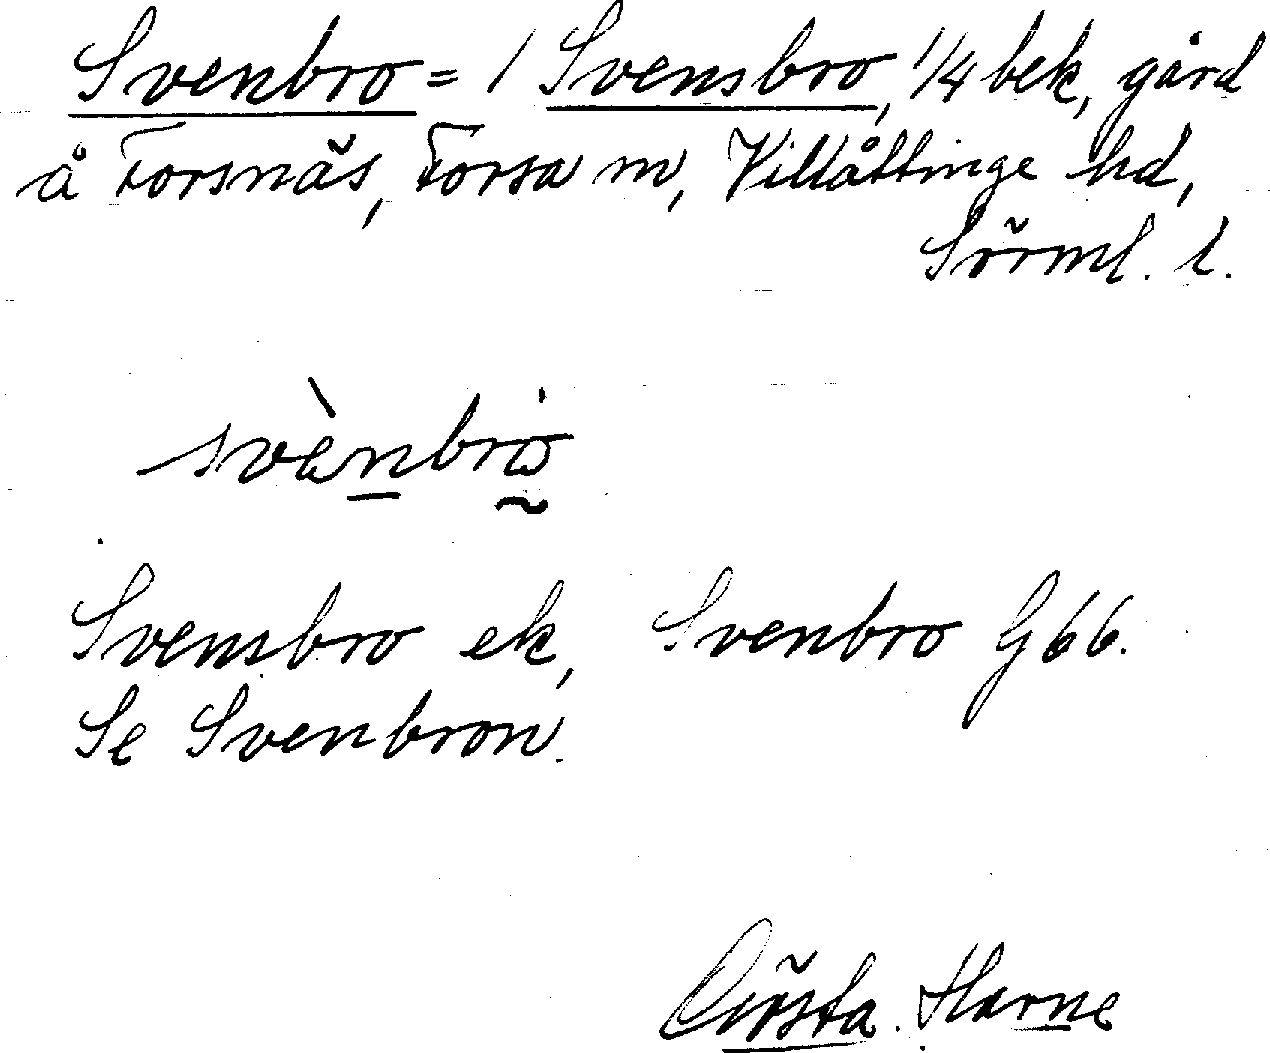 Svenbro = 1 Svensbro, 1/4 bek, gård
å Forsnäs, Forsa m, Villåttinge hd,
Sörml. l.
svànbrò
Svensbro ek, Svenbro G66.
Se Svenbron.
Gösta Harne